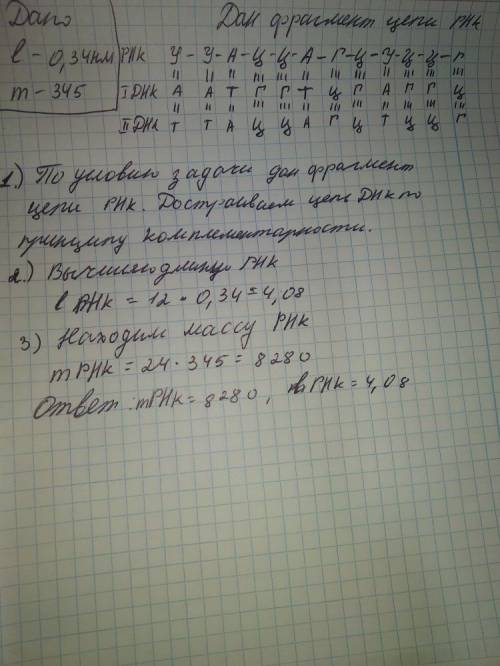 Дано
l - 0,34нм
m - 345
Дан фрагмент цепи РНк
РНк У - У - А - Ц - Ц - А - Г - Ц - У - Ц - Ц - Г
I ДНк А А Т Г Г Т Ц Г А Г Г Ц
II ДНк Т Т А Ц Ц А Г Ц Т Ц Ц Г
1.) По условию задачи дан фрагмент
цепи РНк. Достраиваем цепь ДНк по
принципу комплементарности.
2.) Вычисляю длину РНк
l РНк = 12 · 0,34 = 4,08
3) Находим массу РНк
m РНк = 24 · 345 = 8280
Ответ: mРНк = 8280, РНк = 4,08